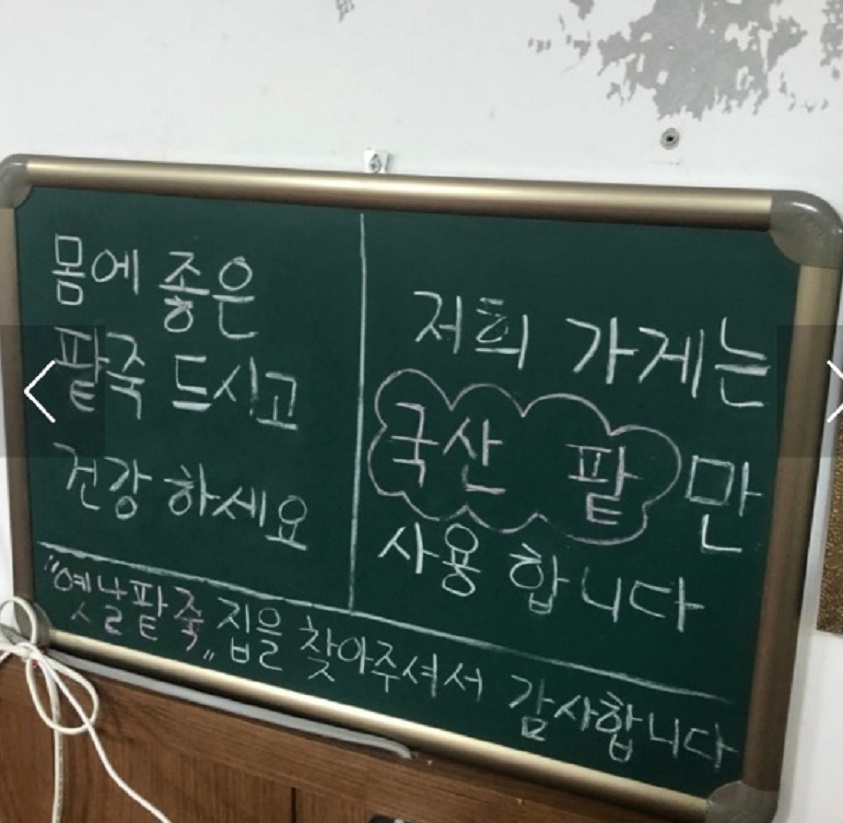 몸에 좋은
팥죽 드시고
건강 하세요
저희 가게는
국산 팥만
사용 합니다
"옛날팥죽" 집을 찾아주셔서 감사합니다